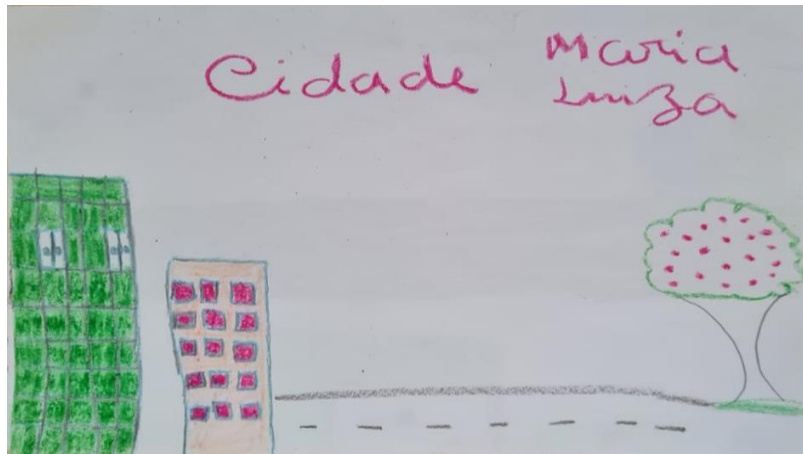 Cidade
Maria
Luiza